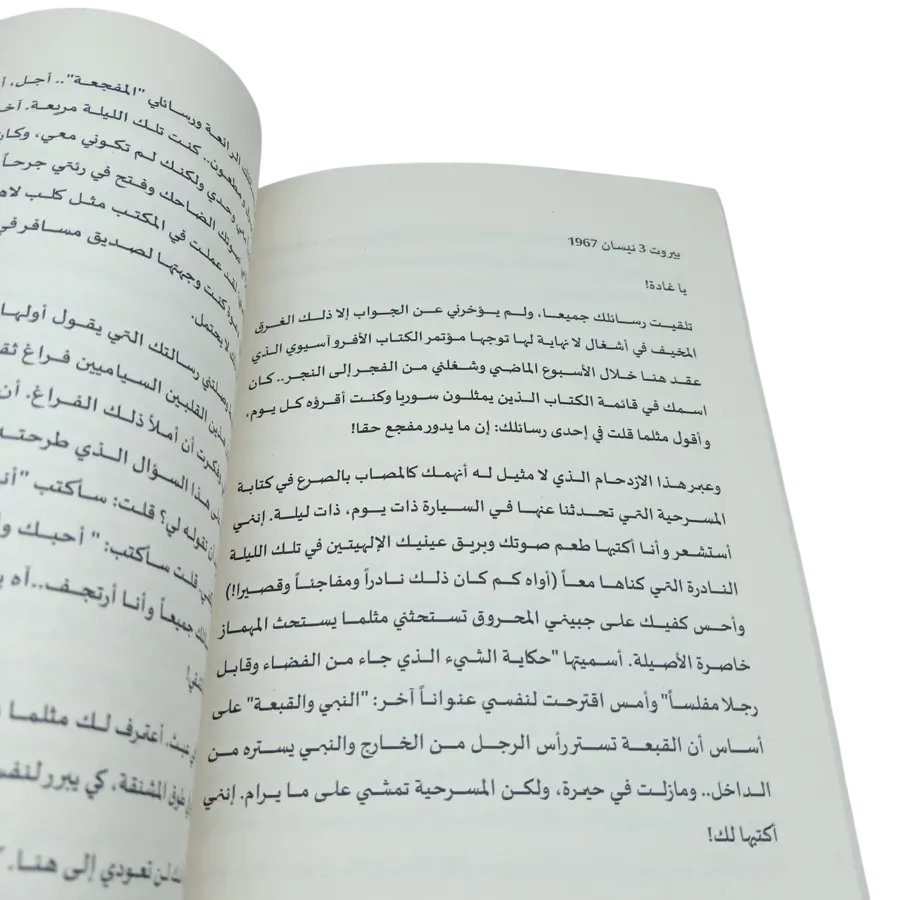 ـك الرائعة ورسائلي "المفجعة".. أجل.
كنت تلك الليلة مريعة.
وحدي ولكنك لم تكوني معي، وكان
صوتك الضاحك وفتح في رئتي جرحاً
لقد عملت في المكتب مثل كلب
كنت وجهتها لصديق مسافر في
لا يحتمل.
وصلتني رسالتك التي يقول أولها
هذين القلبين السياميين فراغ
فكرت أن أملأ ذلك الفراغ. أن
هذا السؤال الذي طرحته
أن تقوله لي؟ قلت: سأكتب
قلت سأكتب: " أحبك
جميعاً وأنا أرتجف..آه
عبث. أعترف لك مثلما
طوق المشنقة، كي يبرر
لن تعودي إلى هنا.
بيروت 3 نيسان 1967
يا غادة!
تلقيت رسائلك جميعا، ولم يؤخرني عن الجواب إلا ذلك الغرق
المخيف في أشغال لا نهاية لها توجها مؤتمر الكتاب الأفرو آسيوي الذي
عقد هنا خلال الأسبوع الماضي وشغلني من الفجر إلى النجر.. كان
اسمك في قائمة الكتاب الذين يمثلون سوريا وكنت أقرؤه كل يوم،
وأقول مثلما قلت في إحدى رسائلك: إن ما يدور مفجع حقا!
وعبر هذا الازدحام الذي لا مثيل له أنهمك كالمصاب بالصرع في كتابة
المسرحية التي تحدثنا عنها في السيارة ذات يوم، ذات ليلة. إنني
أستشعر وأنا أكتبها طعم صوتك وبريق عينيك الإلهيتين في تلك الليلة
النادرة التي كناها معاً (أواه كم كان ذلك نادراً ومفاجئاً وقصيرا!)
وأحس كفيك على جبيني المحروق تستحثني مثلما يستحث المهماز
خاصرة الأصيلة. أسميتها "حكاية الشيء الذي جاء من الفضاء وقابل
رجلا مفلساً" وأمس اقترحت لنفسي عنواناً آخر: "النبي والقبعة" على
أساس أن القبعة تستر رأس الرجل من الخارج والنبي يستره من
الداخل.. ومازلت في حيرة، ولكن المسرحية تمشي على ما يرام. إنني
أكتبها لك!